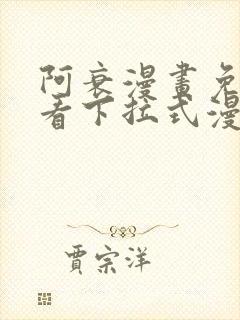 阿衰漫畫免
看下拉式漫
賈宗洋